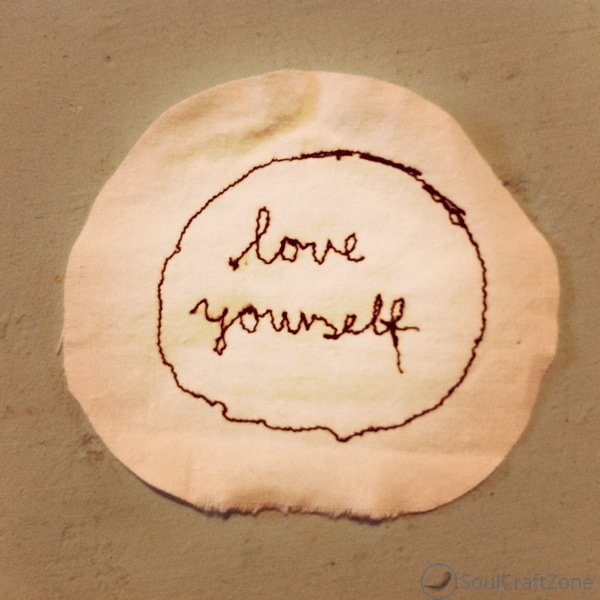 love
yourself
SoulCraftZone